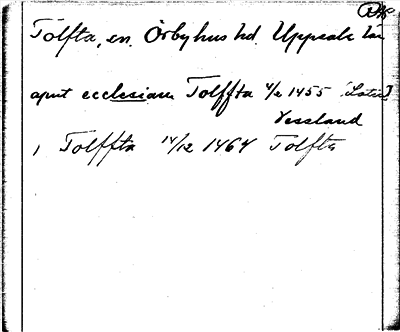 Tolfta, en. Örbyhus hd. Uppsala län
aput ecclesiam Tolffta 4/2 1455 [Latin]
Vessland
i Tolffta 14/12 1464 Tolfta